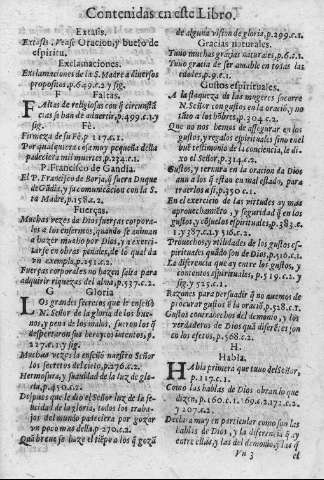 Contenidas en este Libro.
Extasis.
Extasis. Vease Oracion, y bueso de
espiritu.
Exclamaciones.
Exclamaciones de la S. Madre a diversos
propositos p.649.c.2 y sig.
Faltas.
Faltas de religiosas con q̃ circunstã
cias se han de advertir, p.499.c.1.y
sig.
Fè.
Firmeza de su Fè p 117.c.1.
Por qualquiera cosa muy pequeña della
padeciera mil muertes p.234.c.1.
P. Francisco de Gandia.
El P. Francisco de Borja, q̃ fuera Duque
de Gãdia, y su comunicacion con la S.
ta Madre, p.158.c.2.
Fuerças.
Muchas vezes da Dios fuerças corpora-
les a los enfermos, quando se animan
a hazer mucho por Dios, y a exerci-
tarse en obras penales, de lo qual da
vn exemplo, p.251.c.2.
Fuerças corporales no hazen falta para
adquirir riquezas del alma, p.537.c.2.
G
Gloria
Los grandes secretos que le enseñò
N. Señor de la gloria de los bue-
nos, y pena de los malos, fueron los q̃
despertaron sus heroycos intentos, p.
227.c.1.y sig.
Muchas vezes la enseñò nuestro Señor
los secretos del cielo, p.276.c.2.
Hermosura, y suavidad de la luz de glo-
ria, p.450.c.2.
Despues que le dio el Señor luz de la fe-
licidad de la gloria, todos los traba-
jos del mundo padeciera por gozar
vn poco mas della, p 270.c.2.
Quã breve se haze el tiẽpo a los q̃ gozã
de alguna visiõn de gloria, p.299.c.1.
Gracias naturales.
Tuvo muchas gracias naturales, p.6.c.1.
Tuvo gracia de ser amable en todas las
edades, p.9.c.1.
Gustos espirituales.
A la flaqueza de las mugeres socorre
N. Señor con gustos en la oraciõ, y no
tãto a los hõbres, p.304.c.2.
Que no nos hemos de assegurar en los
gustos, y regalos espirituales sino en el
buẽ testimonio de la conciencia, le di-
xo el Señor, p.314.c.2.
Gustos, y ternura en la oracion da Dios
aun a los q̃ estan en mal estado, para
traerlos a si, p.350.c.1.
En el exercicio de las virtudes ay mas
aprovechamiẽto, y seguridad q̃ en los
gustos, y cõsuelos espirituales, p.383.c.
1.y 387.c.2.y 516.c.2.
Provechos, y utilidades de los gustos es-
pirituales quãdo son de Dios, p.516.c.1.
La diferencia que ay entre los gustos, y
contentos espirituales, p.519.c.1.y
sig. y 525.c.1.
Razones para persuadir q̃ no avemos de
procurar gustos ẽ la oraciõ, p.528.c.1.
Gustos contrahechos del demonio, y los
verdaderos de Dios quã diferẽtes son
en los efectos, p.568.c.2.
H.
Habla.
Habla primera que tuvo del Señor,
p.117.c.1.
Como las hablas de Dios obran lo que
dizen, p.160.c.1.169.c.2.172.c.2.
y 207.c.2.
Declara muy en particular como son las
hablas de Dios, y la diferencia q̃ ay
entre ellas, y las del demonio, y las q̃
Vu 3
el